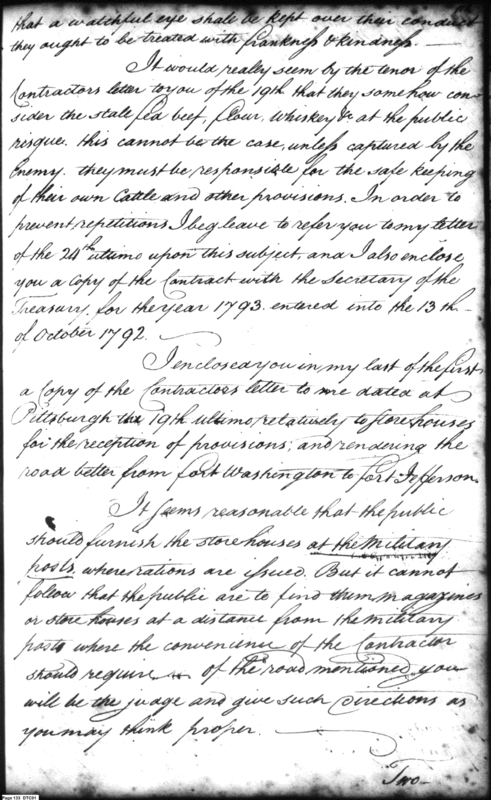 that a watchful eye shall be kept over their conduct
they ought to be treated with frankness & kindness.—
It would realey seem by the tenor of the
Contractors letter to you of the 19th that they somehow con-
sider the stall fed beef, flour, Whiskey & at the public
risque. this cannot be the case, unless captured by the
Enemy. they must be responsible for the safe keeping
of their own Cattle and other provisions. In order to
prevent repetitions I beg leave to refer you to my letter
of the 24th ultimo upon this subject, and I also enclose
you a Copy of the Contract with the Secretary of the
Treasury, for the year 1793. entered into the 13th
of October 1792.
I enclosed you in my last of the first
a Copy of the Contractors letter to me dated at
Pittsburgh the 19th ultimo, relatively to store houses
for the reception of provisions; and rendering the
road better from fort Washington to Fort Jefferson.
It seems reasonable that the public
should furnish the store houses at the Military
posts, where rations are issued. But it cannot
follow that the public are to find them magazines
or store houses at a distance from the Military
posts where the convenience of the Contractor
should require of the road mentioned you
will be the judge and give such directions as
you may think proper.
Two—
Page 133 DTC01